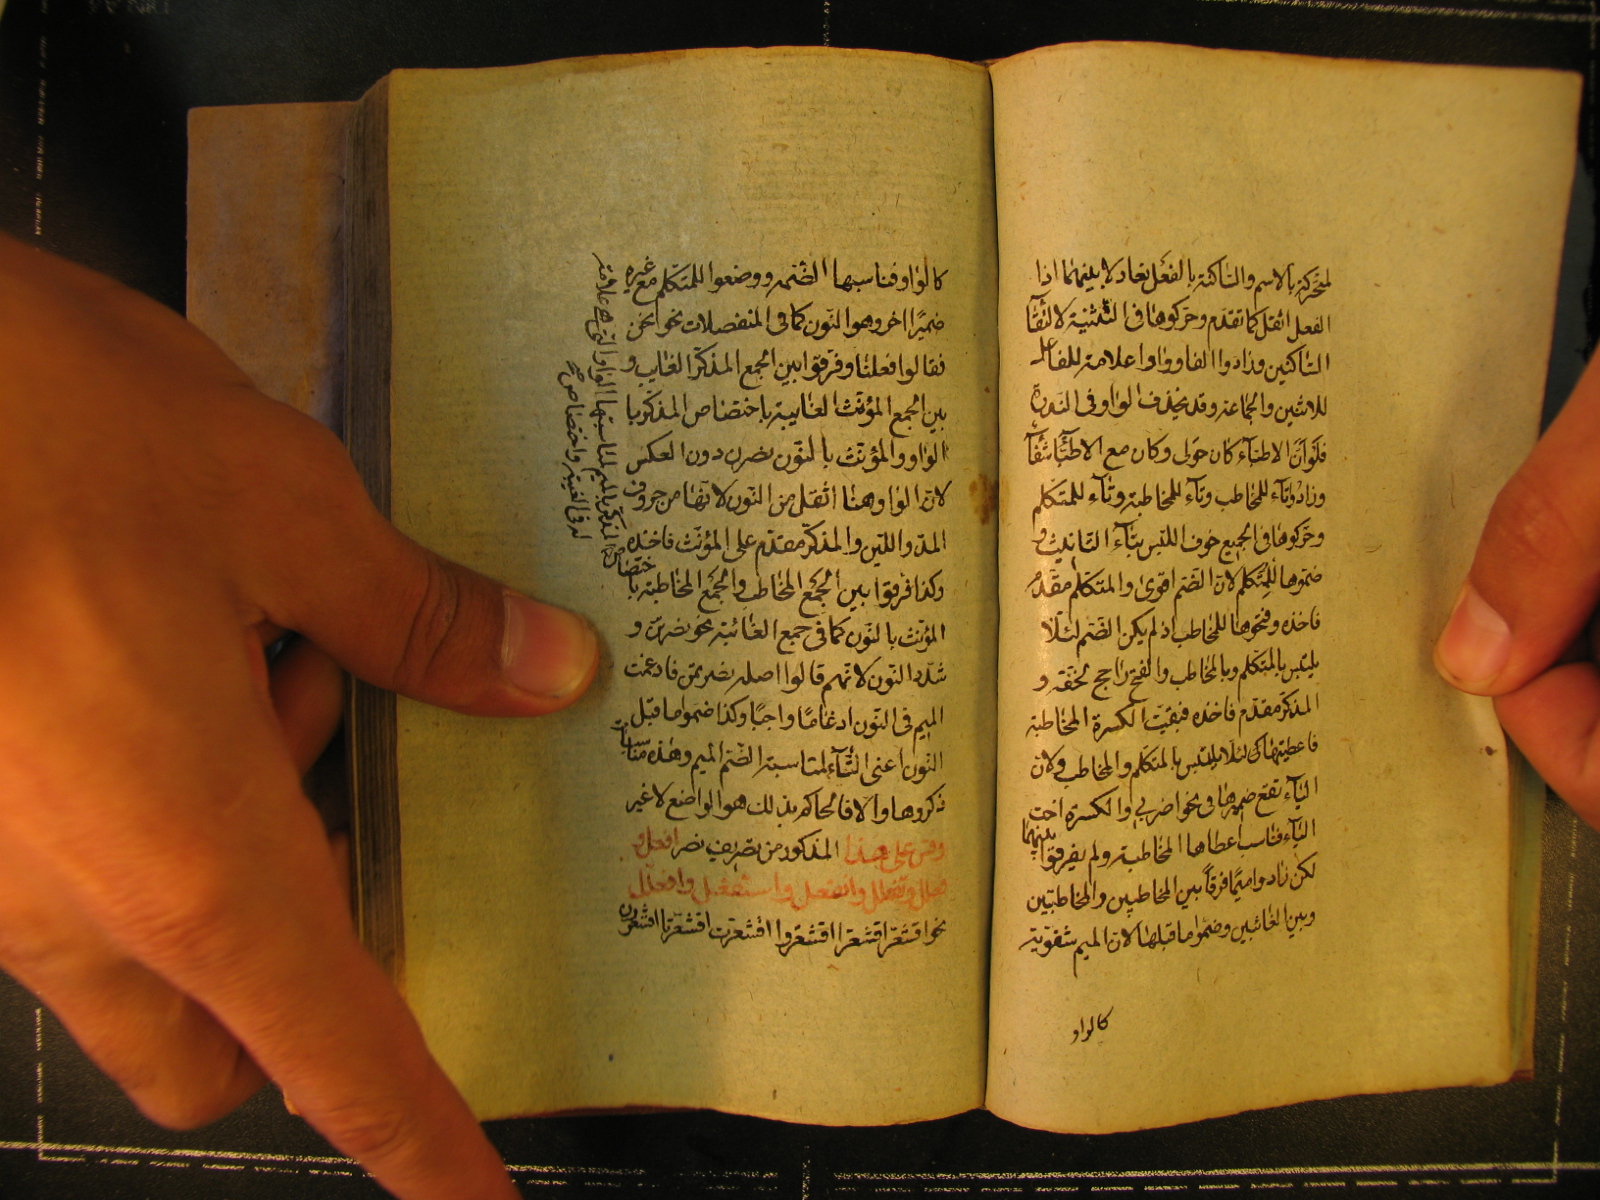 المتحركة بالاسم والساكنة بالفعل تعادلا بينهما اذا
الفعل اثقل كما تقدم وحركوها فى التثنية لالتقآ
الساكنين وزادوا الفا وواوا علامة للفاعل
للاثنين والجماعة وقد يحذف الواو فى الندرة
فلو ان الاطبآء كان حولى وكان مع الاطبآ شفآ
وزادوا تآء للمخاطب وتآء للمخاطبة وتآء للمتكلم
وحركوها فى الجميع خوف اللبس بتآء التانيث و
ضموها للمتكلم لان الضم اقوى والمتكلم مقدم
فاخذه وفتحوها للمخاطب اذ لم يكن الضم لئلا
يلتبس بالمتكلم وبالمخاطب والفتح راجح لخفته و
المذكر مقدم فاخذه فبقيت الكسرة المخاطبة
فاعطيتها لئلا يلتبس بالمتكلم والمخاطب ولان
اليآء تقع ضميرها فى نحو اضربي والكسرة اخت
اليآء فناسب اعطاها المخاطبة ولم يفرقوا بينهما
لكن زادوا ميما فرقا بين المخاطبين والمخاطبتين
وبين الغائبين وضموا ما قبلها لان الميم شفوية
كالواو
كالواو فناسبها الضمة ووضعوا للمتكلم مع غيره
ضميرا اخر وهو النون كما فى المنفصلات نحو نحن
فقالوا فعلنا وفرقوا بين الجمع المذكر الغايب و
بين الجمع المؤنث الغايبة باختصاص المذكر با
الواو والمؤنث بالنون نصرن دون العكس
لان الواو هنا اثقل من النون لانها من حروف
المد واللين والمذكر مقدم على المؤنث فاخذه
وكذا فرقوا بين الجمع المخاطب والجمع المخاطبة با
ختصاص المذكر بالميم لمناسبتها الواو التى هى علامة
له فى الغيبة واختصاص صح
المؤنث بالنون كما فى جمع الغائبة نحو نصرن و
شدد النون لانهم قالوا اصله نصرتمن فادغمت
الميم فى النون ادغاما واجبا وكذا ضموا ما قبل
النون اعنى التآء لمناسبة الضم الميم وهذه مناسبات
ذكروها والا فالحاكم بذلك هو الواضع لا غير
وقس على هذا المذكور من تصريف نصر افعل و
فعلل وتفعلل وانفعل واستفعل وافعلل
نحو اقشعر اقشعرا اقشعروا اقشعرت اقشعرتا اقشعررن